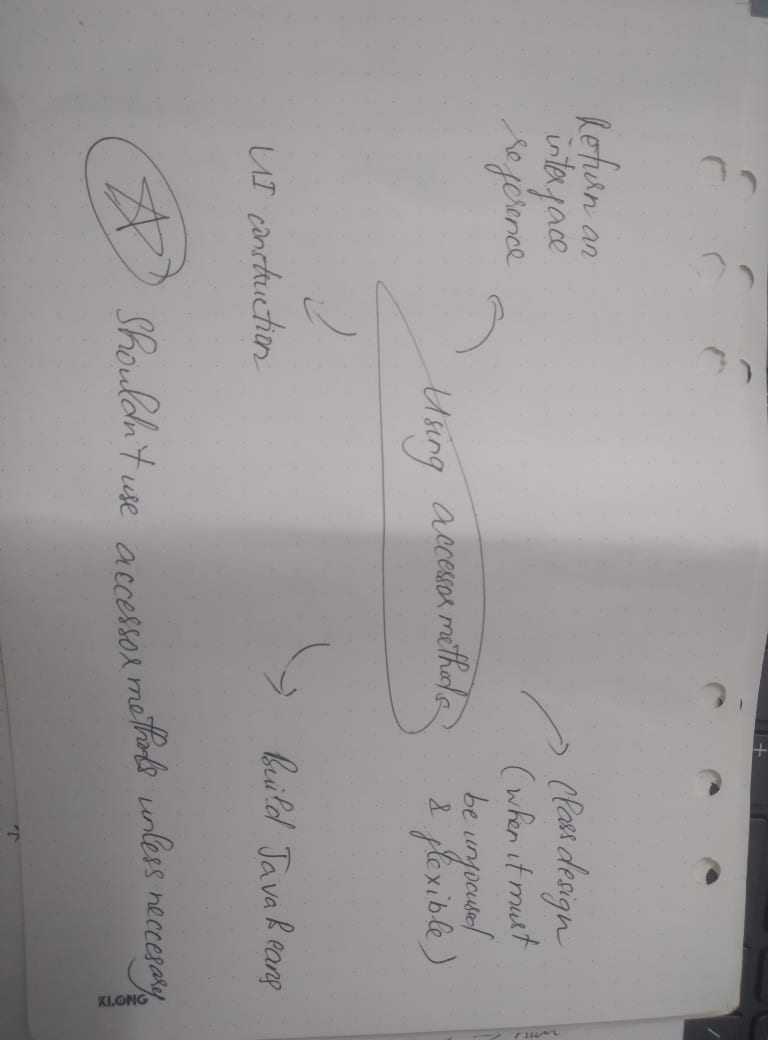 Return an
interface
reference
Class design
(when it must
be unfocused
& flexible)
Using accessor methods
UI construction
Build JavaBeans
Shouldn't use accessor methods unless neccesary
KLONG